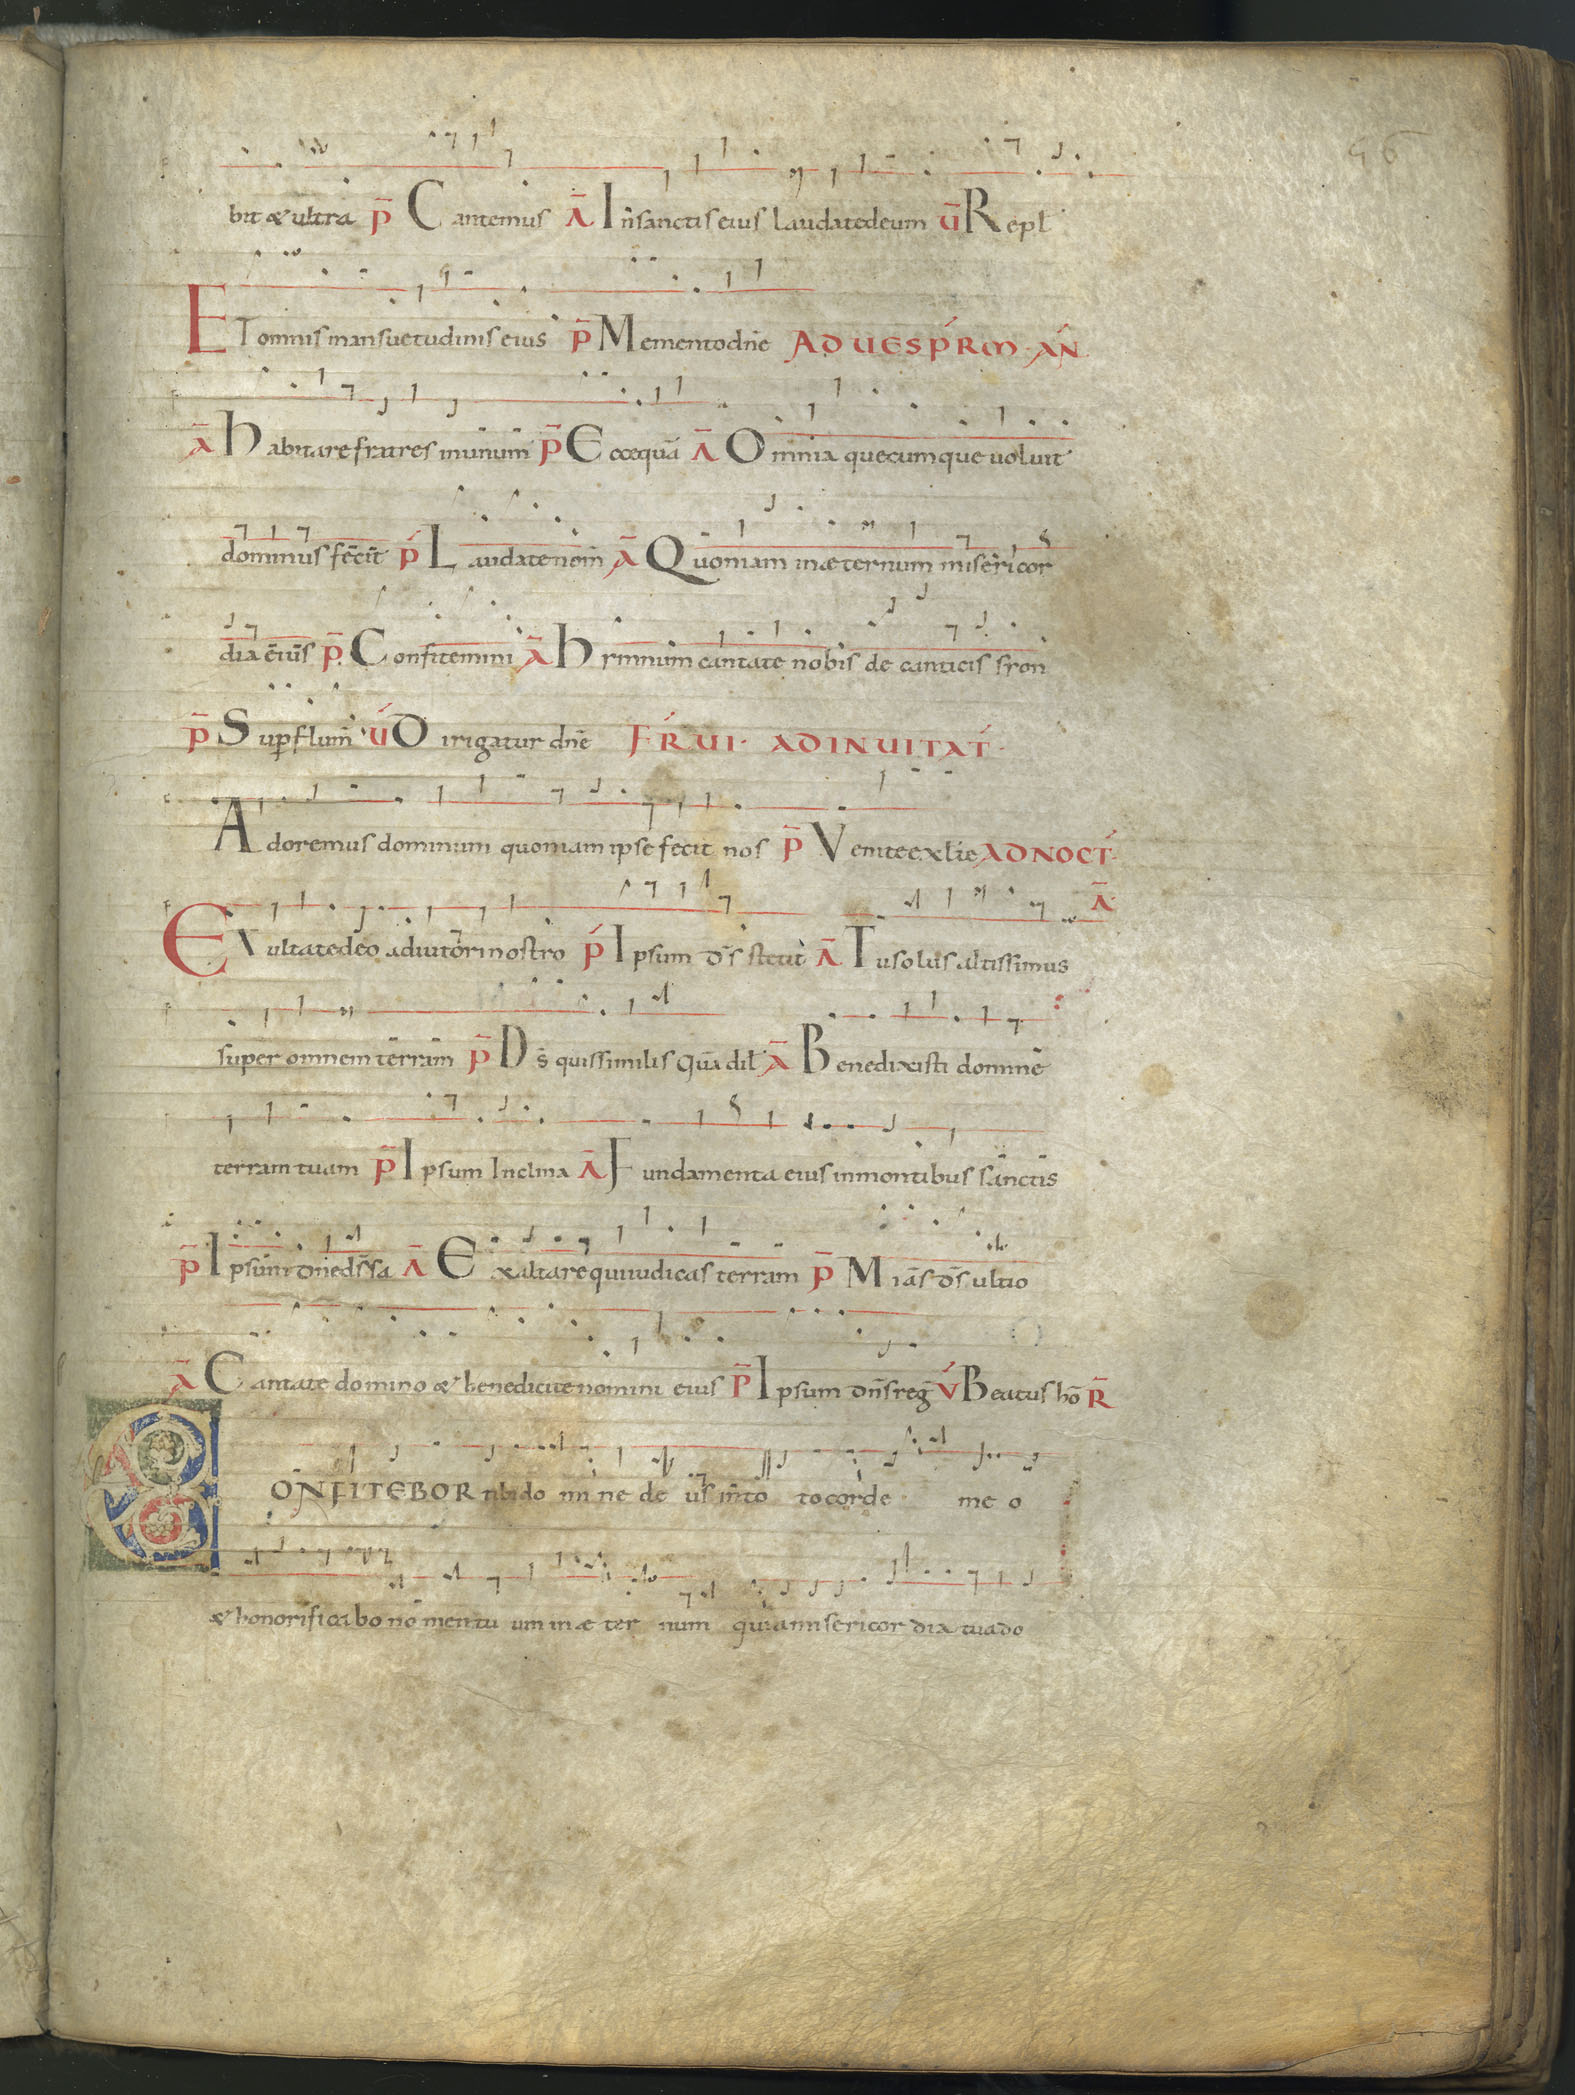 96
bit & ultra p̄ Cantemus Ā In̄ sanctis eius Laudate deum ū Repl̄
ET omnis mansuetudinis eius p̄ Memento dn̄e AD UESṔRM · ÁN
Ā habitare fratres inunum p̄ Ecce quā Ā Omnia quecumque uoluit
dominus fecit ṕ Laudate nom̄ Ā Quoniam in æternum misericor
dia eius p̄ Confitemini Ā hymnum cantate nobis de canticis syon
p̄ Sup flum̄ ū Dirigatur dn̄e F́R UI · AD INUITAT́ ·
Adoremus dominum quoniam ipse fecit nos p̄ Venite exl̄te AD NOCT́ ·
Exultate deo adiutori nostro ṕ Ipsum d̄s stetit Ā Tu solus altissimus Ā
super omnem terram p̄ Ds̄ quis similis Quā dil̄ Ā Benedixisti domine
terram tuam p̄ Ipsum Inclina Ā Fundamenta eius in montibus sanctis
p̄ Ipsum dn̄e ds̄ sa Ā Exaltare qui iudicas terram p̄ Miās d̄s ultio
Ā Cantate domino & benedicite nomini eius p̄ Ipsum dn̄s reḡ V́ Beatus hō R̄
CONFITEBOR tibi do mi ne de us in to to corde me o
& honorificabo nomen tu um in æ ter num quia misericordia tua do